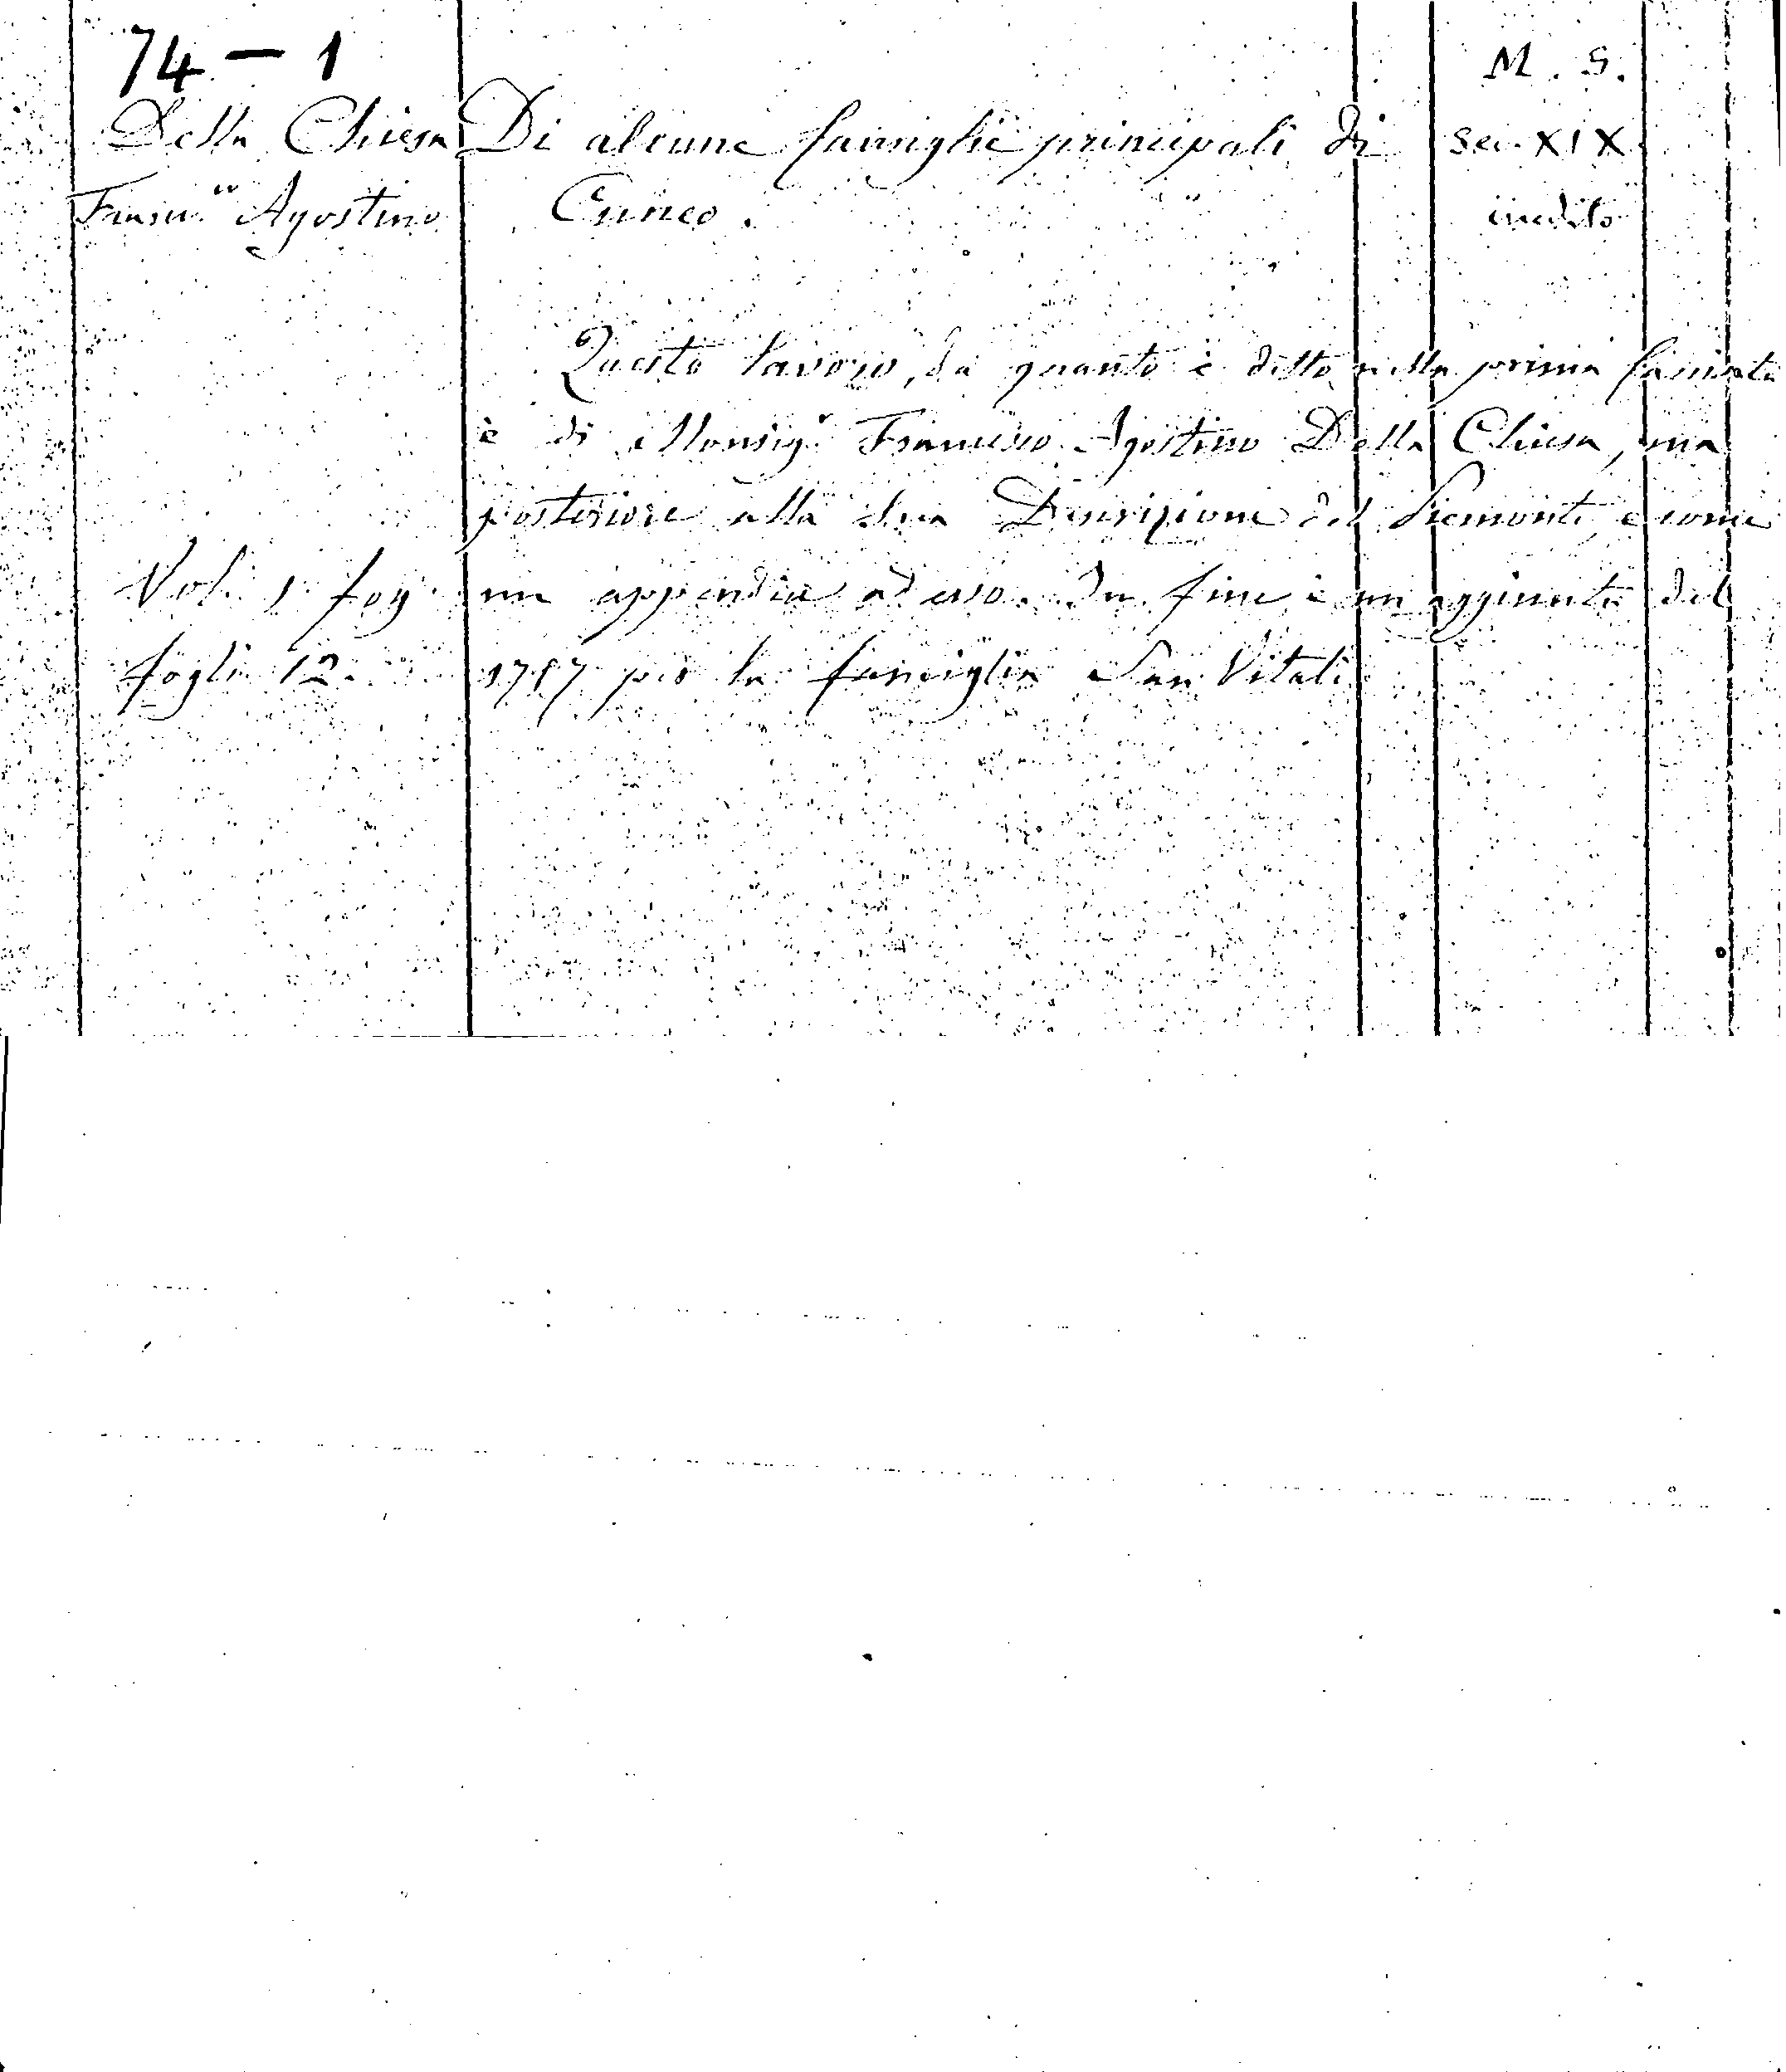 74 - 1
M. S.
Della Chiesa Di alcune famiglie principali di sec. XIX
Franc.co Agostino Cuneo. inedito
Questo lavoro, da quanto è detto nella prima facciata
è di Monsig.r Francesco Agostino Della Chiesa, ma
posteriore alla sua Descrizione del Piemonte, e come
Vol. 1 fog. un appendice ad essa. In fine è un aggiunta del
fogli 12. 1717 per la famiglia San Vitali